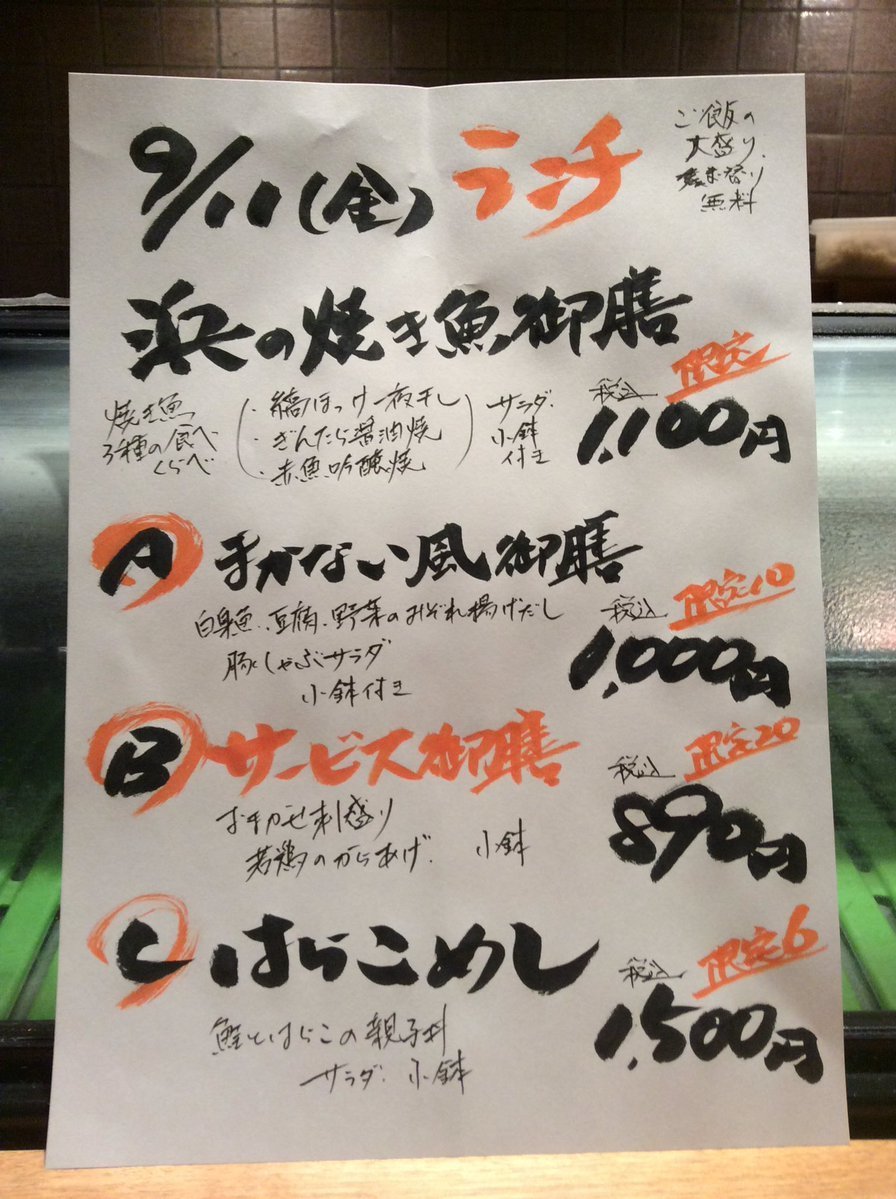 9/11(金) ランチ
ご飯の
大盛り、
無料
浜の焼き魚御膳
限定
焼き魚
3種の食べ
くらべ
・縞ほっけ一夜干し
・ぎんだら醤油焼
・赤魚吟醸焼
サラダ、
小鉢
付き
税込
1,100円
A まかない風御膳
限定10
白身魚、豆腐、野菜のみぞれ揚げだし
豚しゃぶサラダ
小鉢付き
税込
1,000円
B サービス御膳
限定20
おまかせ刺盛り
若鶏のからあげ、小鉢
税込
890円
C はらこめし
限定6
鮭とはらこの親子丼
サラダ、小鉢
税込
1,500円